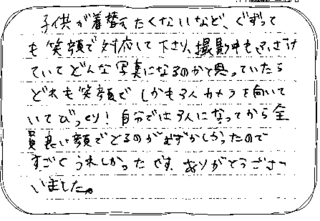 子供が着替えたくないなど、ぐずって
も笑顔で対応して下さり、撮影中もふざけ
ていてどんな写真になるのかと思っていたら
どれも笑顔で しかも3人カメラを向いて
いてびっくり！自分では3人になってから全
員良い顔でとるのがむずかしかったので
すごくうれしかったです。ありがとうござ
いました。